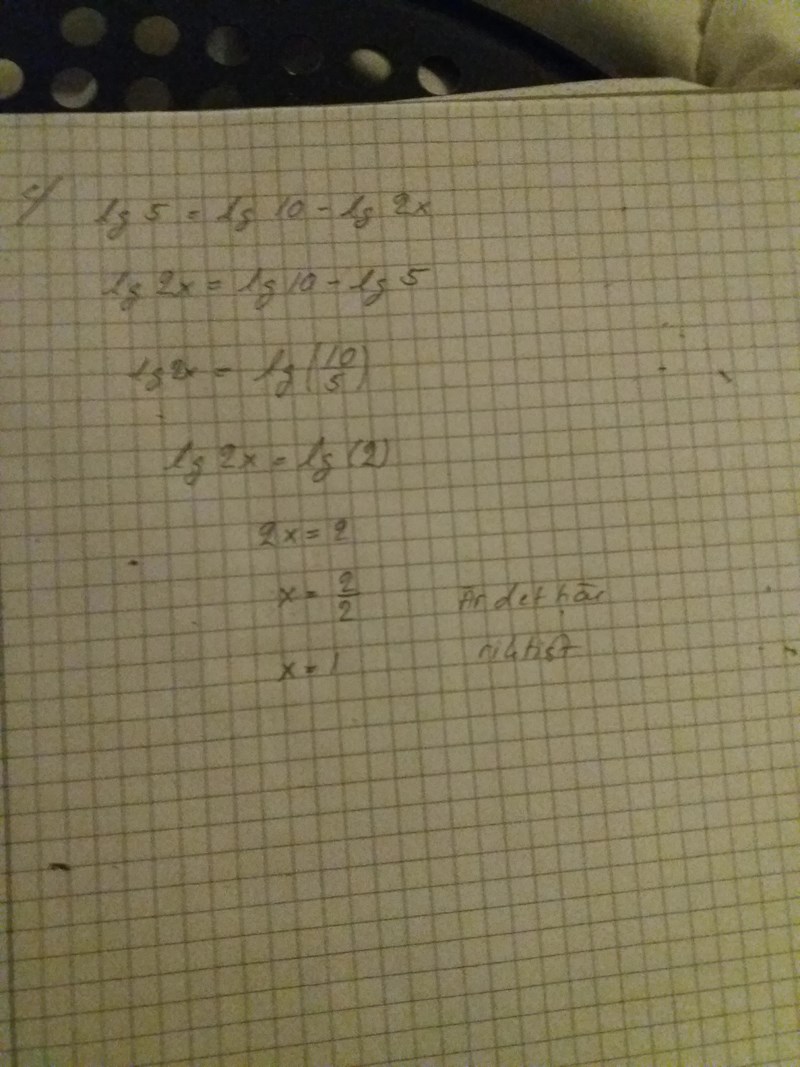 c/ lg 5 = lg 10 - lg 2x
lg 2x = lg 10 - lg 5
lg 2x = lg (10/5)
lg 2x = lg (2)
2x = 2
x = 2/2
x = 1
Är det här
riktigt